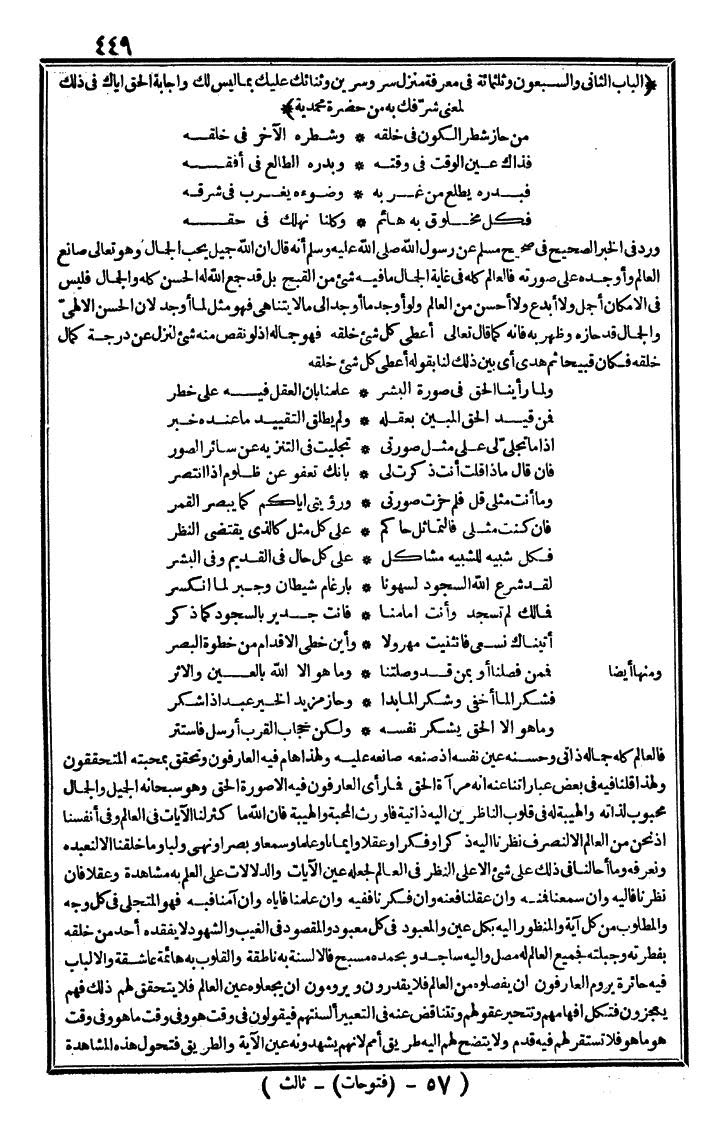 ٤٤٩
﴿الباب الثانى والسبعون وثلثمائة فى معرفة منزل سر وسرين وثنائك عليك بماليس لك واجابة الحق اياك فى ذلك
لمعنى شرّفك به من حضرة محمدية﴾
من حاز شطر الكون فى خلقه * وشطره الآخر فى خلقه
فذاك عين الوقت فى وقته * وبدره الطالع فى أفقه
فبدره يطلع من غربه * وضوءه يغرب فى شرقه
فكل مخلوق به هائم * وكلنا نهلك فى حقه
ورد فى الخبر الصحيح فى صحيح مسلم عن رسول الله صلى الله عليه وسلم أنه قال ان الله جميل يحب الجمال وهو تعالى صانع
العالم وأوجده على صورته فالعالم كله فى غاية الجمال مافيه شئ من القبح بل قد جمع الله له الحسن كله والجمال فليس
فى الامكان أجمل ولا أبدع ولا أحسن من العالم ولو أوجد ما أوجد الى مالا يتناهى فهو مثل لما أوجد لان الحسن الالهىّ
والجمال قد حازه وظهر به فانه كما قال تعالى أعطى كل شئ خلقه فهو جماله اذ لو نقص منه شئ لنزل عن درجة كمال
خلقه فكان قبيحا ثم هدى أى بين ذلك لنا بقوله أعطى كل شئ خلقه
ولما رأينا الحق فى صورة البشر * علمنا بان العقل فيه على خطر
فمن قيد الحق المبين بعقله * ولم يطلق التقييد ماعنده خبر
اذا ماتجلى لى على مثل صورتى * تجليت فى التنزيه عن سائر الصور
فان قال ماذا قلت أنت ذكرت لى * بانك تعفو عن ظلوم اذا انتصر
وما أنت مثلى قل فلم حزت صورتى * ورؤيتى اياكم كما يبصر القمر
فان كنت مثلى فالتماثل حاكم * على كل مثل كالذى يقتضى النظر
فكل شبيه للشبيه مشاكل * على كل حال فى القديم وفى البشر
لقد شرع الله السجود لسهونا * بارغام شيطان وجبر لما انكسر
فمالك لم تسجد وأنت امامنا * فانت جدير بالسجود كما ذكر
أتيناك نسعى فانثنيت مهرولا * وأين خطى الاقدام من خطوة البصر
ومنها أيضا فمن فصلنا أو بمن قد وصلتنا * وما هو الا الله بالعين والاثر
فشكر لما أخفى وشكر لما بدا * وحاز مزيد الخير عبد اذا شكر
وما هو الا الحق يشكر نفسه * ولكن حجاب القرب أرسل فاستتر
فالعالم كله جماله ذاتى وحسنه عين نفسه اذ صنعه صانعه عليه ولهذا هام فيه العارفون وتحقق بمحبته المتحققون
ولهذا قلنا فيه فى بعض عباراتنا عنه انه مرآة الحق فما رأى العارفون فيه الا صورة الحق وهو سبحانه الجميل والجمال
محبوب لذاته والهيبة له فى قلوب الناظرين اليه ذاتية فاورث المحبة والهيبة فان الله ما كثر لنا الآيات فى العالم وفى أنفسنا
اذ نحن من العالم الا لنصرف نظرنا اليه ذكرا وفكرا وعقلا وايمانا وعلما وسمعا وبصرا ونهى ولبا وما خلقنا الا لنعبده
ونعرفه وما أحالنا فى ذلك على شئ الا على النظر فى العالم لجعله عين الآيات والدلالات على العلم به مشاهدة وعقلا فان
نظرنا فاليه وان سمعنا فمنه وان عقلنا فعنه وان فكرنا ففيه وان علمنا فاياه وان آمنا فبه فهو المتجلى فى كل وجه
والمطلوب من كل آية والمنظور اليه بكل عين والمعبود فى كل معبود والمقصود فى الغيب والشهود لا يفقده أحد من خلقه
بفطرته وجبلته فجميع العالم له مصل واليه ساجد وبحمده مسبح فالالسنة به ناطقة والقلوب به هائمة عاشقة والالباب
فيه حائرة يروم العارفون ان يفصلوه من العالم فلا يقدرون ويرومون ان يجعلوه عين العالم فلا يتحقق لهم ذلك فهم
يعجزون فتكل افهامهم وتتحير عقولهم وتتناقض عنه فى التعبير ألسنتهم فيقولون فى وقت هو وفى وقت ماهو وفى وقت
هو ماهو فلا تستقر لهم فيه قدم ولا يتضح لهم اليه طريق أمم لانهم يشهدونه عين الآية والطريق فتحول هذه المشاهدة
( ٥٧ - (فتوحات) - ثالث )